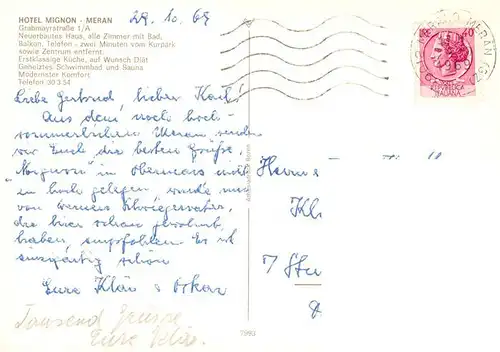 HOTEL MIGNON - MERAN
Grabmayrstraße 1/A
Neuerbautes Haus, alle Zimmer mit Bad,
Balkon, Telefon - zwei Minuten vom Kurpark
sowie Zentrum entfernt.
Erstklassige Küche, auf Wunsch Diät
Geheiztes Schwimmbad und Sauna
Modernster Komfort.
Telefon 30 3 54
29. 10. 69
Liebe Gertrud, lieber Karl!
Aus dem noch hoch-
sommerlichen Meran senden
wir Euch die besten Grüße,
"Mignon" in Obermais und
in hoch gelegen, wurde uns
von Schwiegervater,
die hier schon gewohnt
haben, empfohlen. Es ist
einzigartig schön
Eure Klär & Oskar
Tausend Grüsse
Eure
7993
MERANO MERAN
LIRE 40
ITALIANA
Herrn
Kl
7 Stu